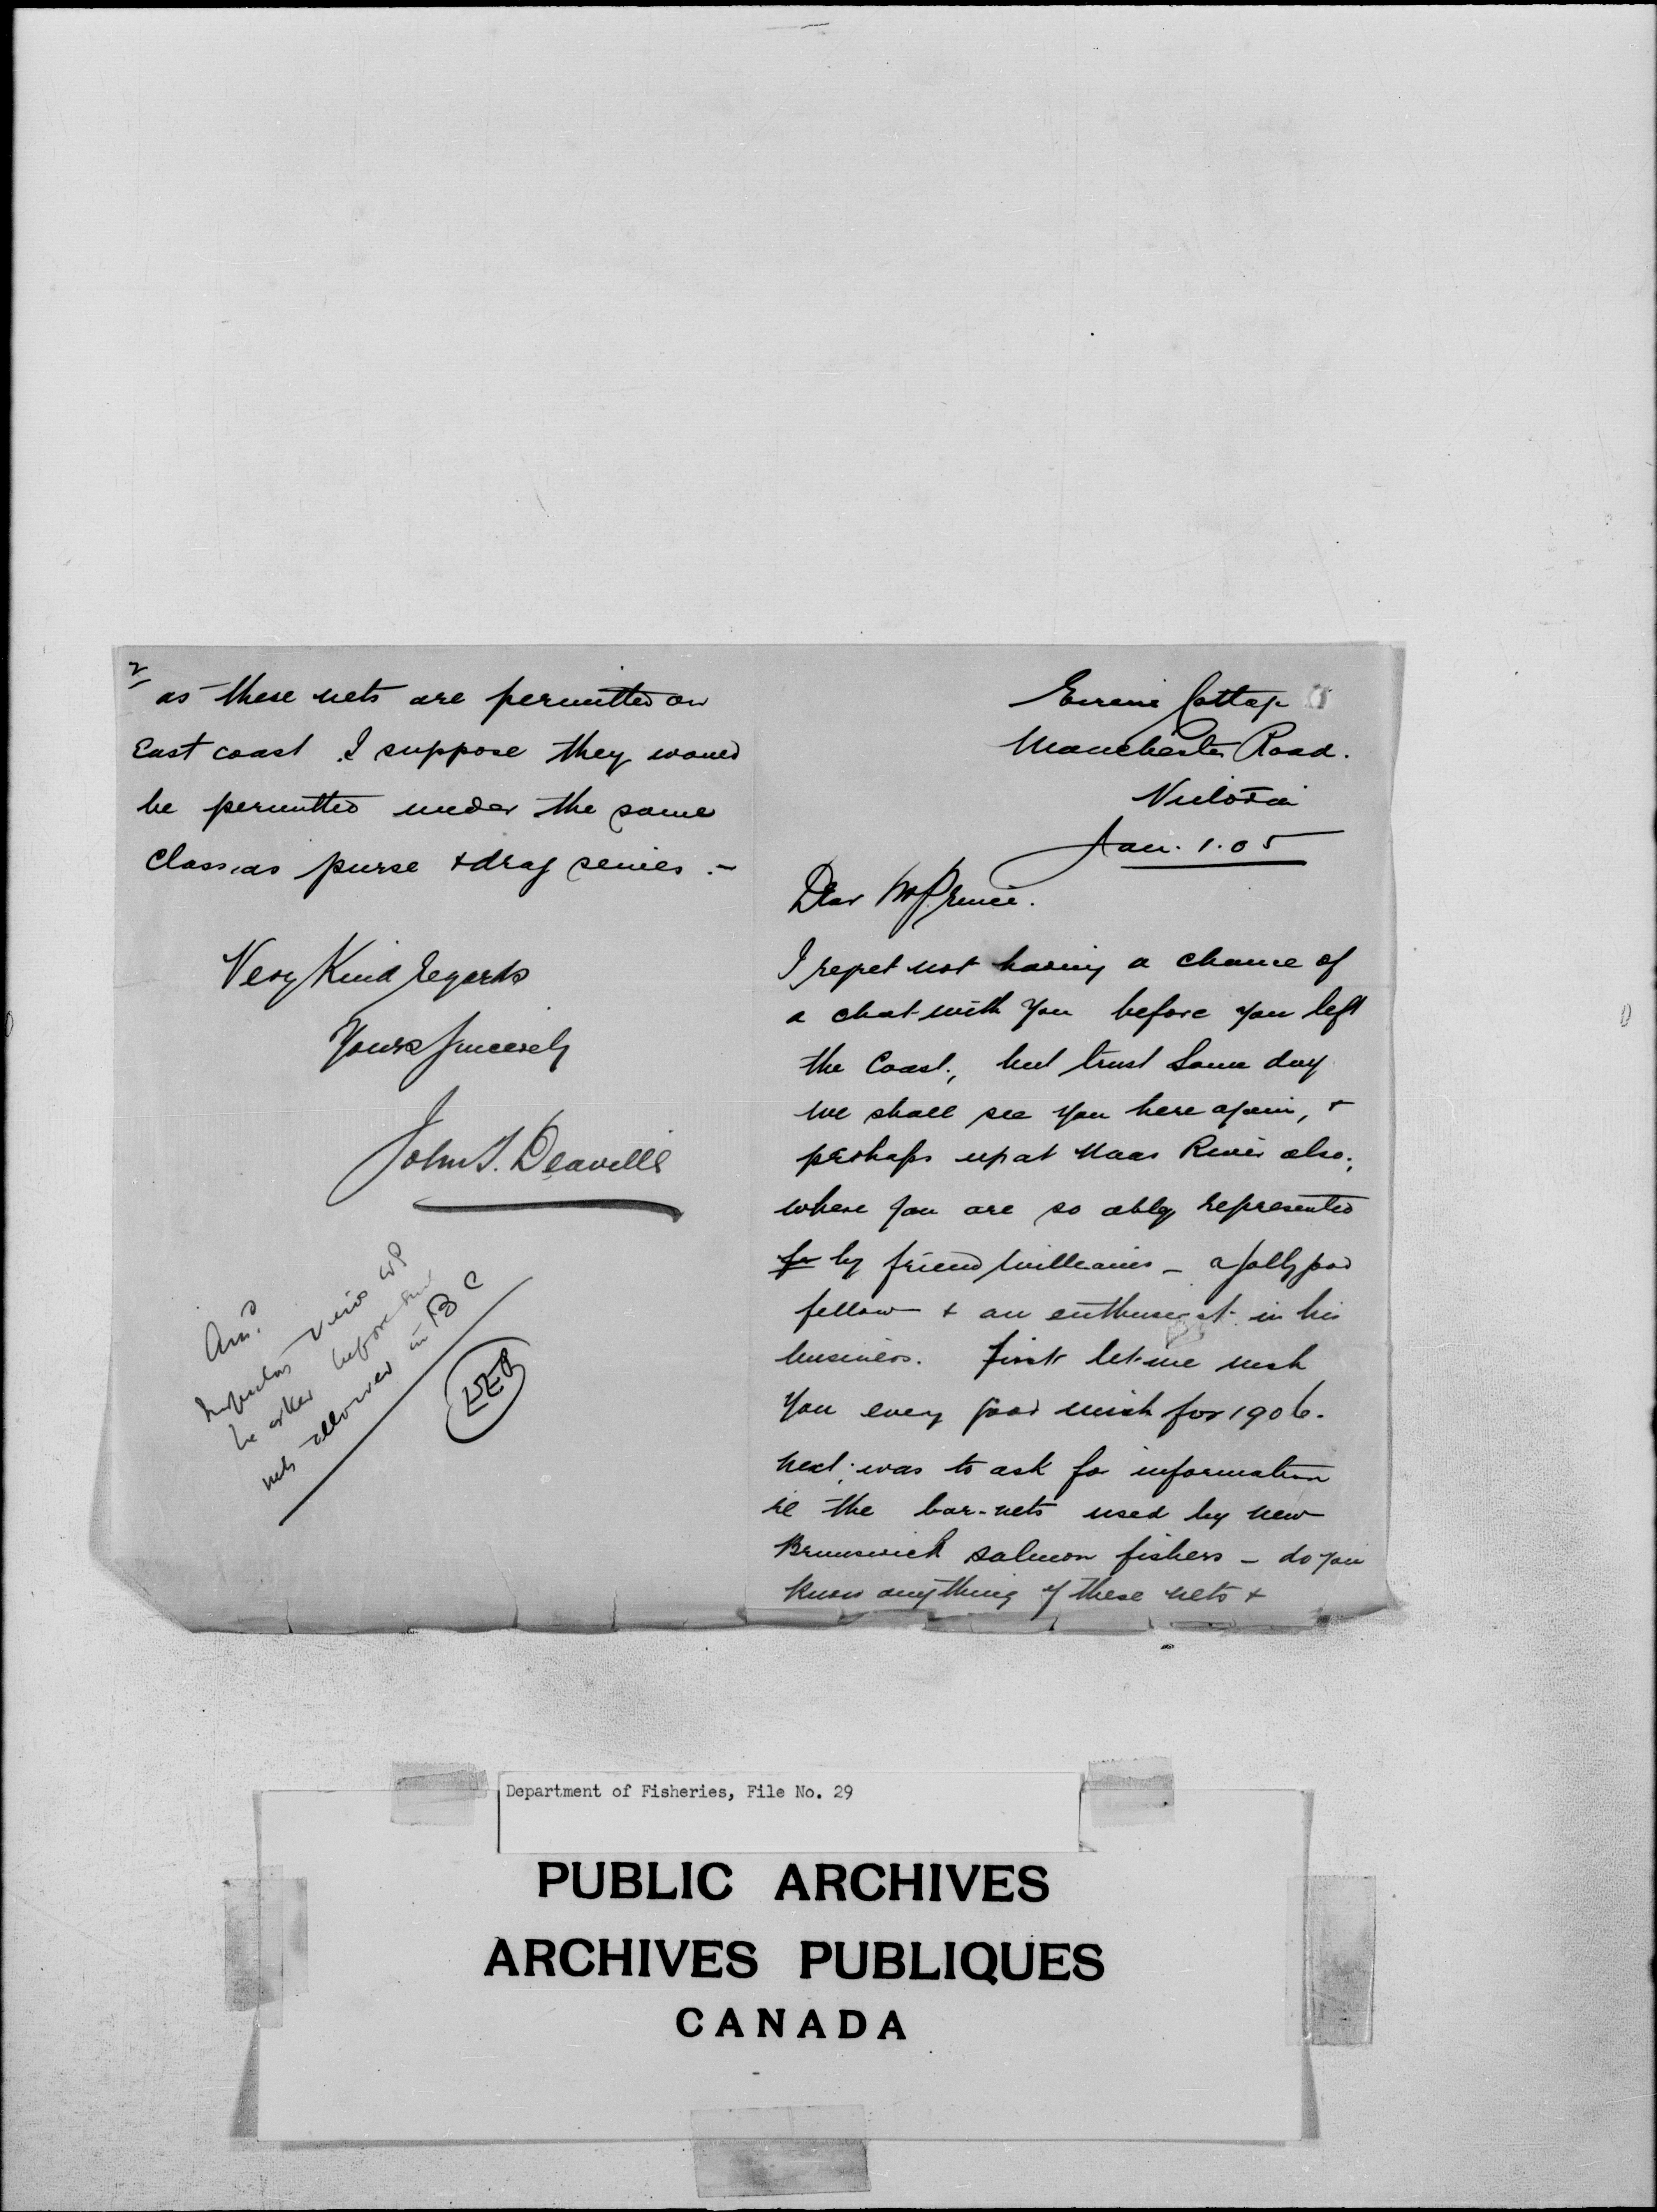 Eirene Cottage
Manchester Road.
Victoria
Jan. 1. 05
Dear Mr Prince.
I regret not having a chance of
a chat with you before you left
the Coast, but trust some day
we shall see you here again, +
perhaps up at Naas River also,
where you are so ably represented
by friend Williams - a jolly good
fellow + an enthusiast in his
business. First let me wish
you every good wish for 1906.
next was to ask for information
re the bar-nets used by New
Brunswick salmon fishers - do you
know anything of these nets +
2/
as these nets are permitted on
East coast I suppose they would
be permitted under the same
class as purse + drag seines -
Very Kind regards
Yours Sincerely
John T. Deaville
Ans.d
Inspectors views wd
be asked before such
nets allowed in B C
EEP
Department of Fisheries, File No. 29
PUBLIC ARCHIVES
ARCHIVES PUBLIQUES
CANADA